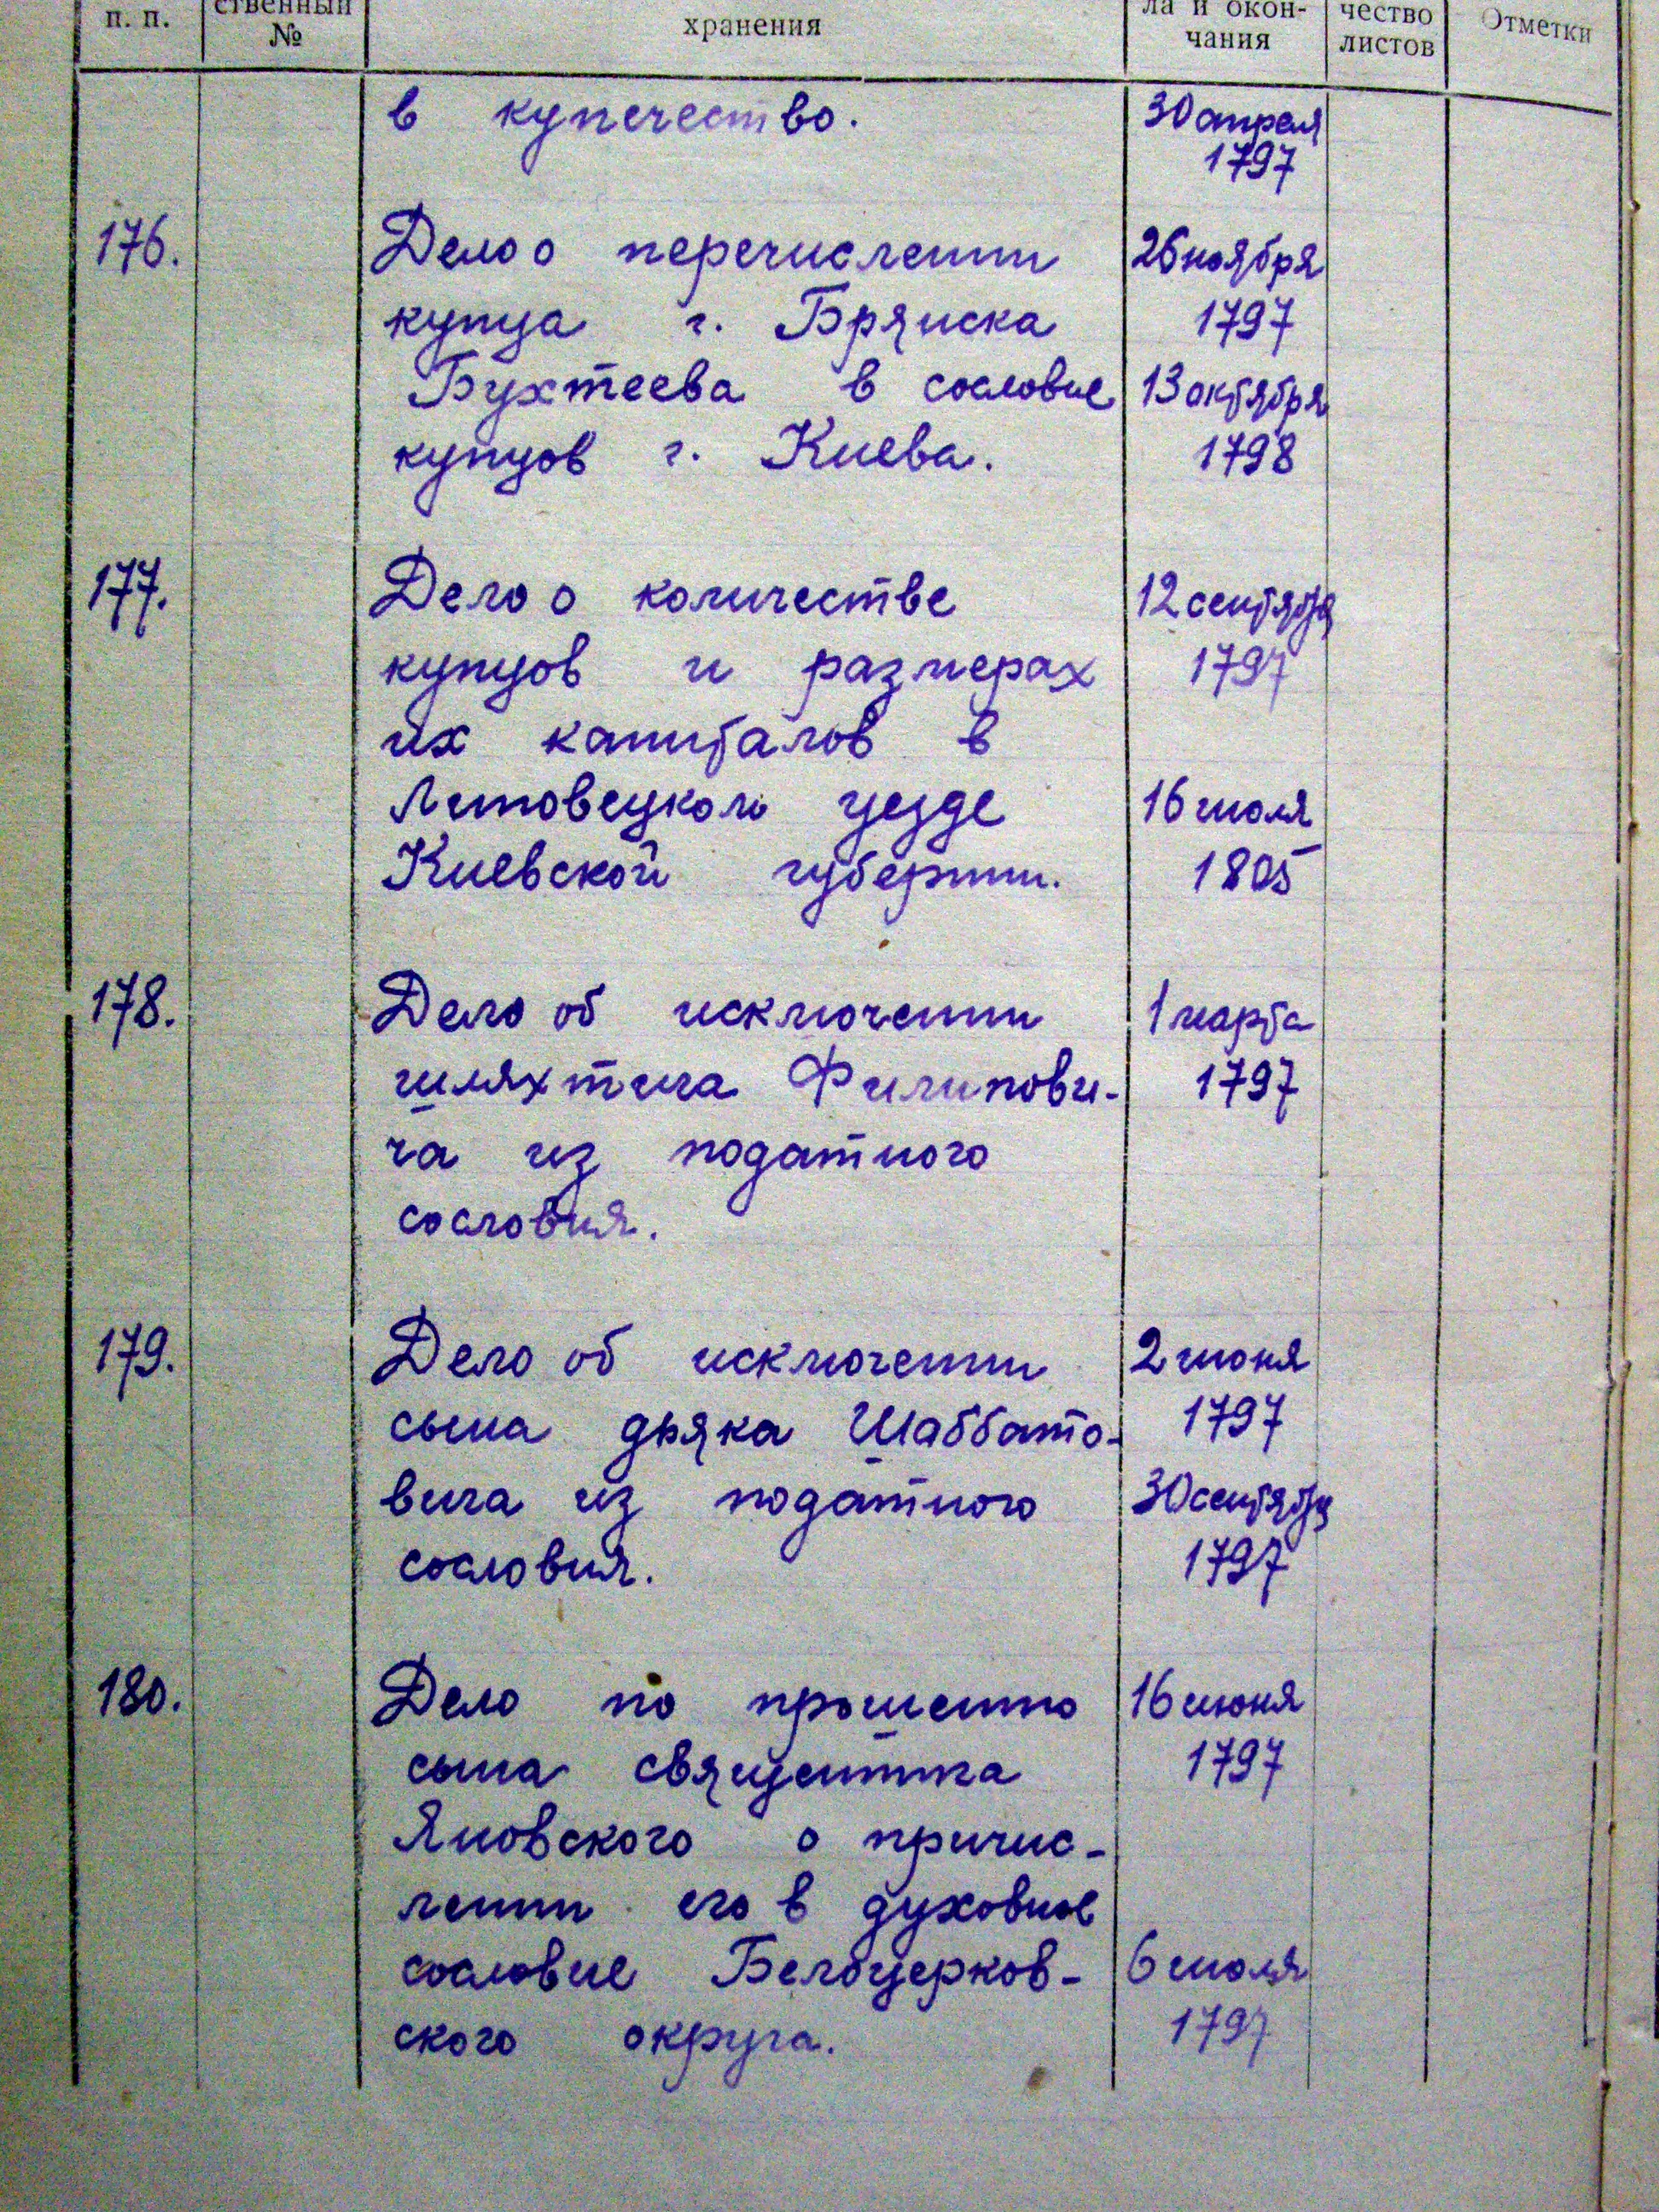 п. п. ственный № хранения ла и окон- чания чество листов Отметки
в купечество. 30 апреля
1797
176. Дело о перечислении 26 ноября
купца г. Брянска 1797
Бухтеева в сословие 13 октября
купцов г. Киева. 1798
177. Дело о количестве 12 сентября
купцов и размерах 1797
их капиталов в
Липовецком уезде 16 июля
Киевской губернии. 1805
178. Дело об исключении 1 марта
шляхтича Филипови- 1797
ча из податного
сословия.
179. Дело об исключении 2 июня
сына дьяка Шаббато- 1797
вича из податного 30 сентября
сословия. 1797
180. Дело по прошению 16 июня
сына священника 1797
Яновского о причис-
лении его в духовное
сословие Белоцерков- 6 июля
ского округа. 1797